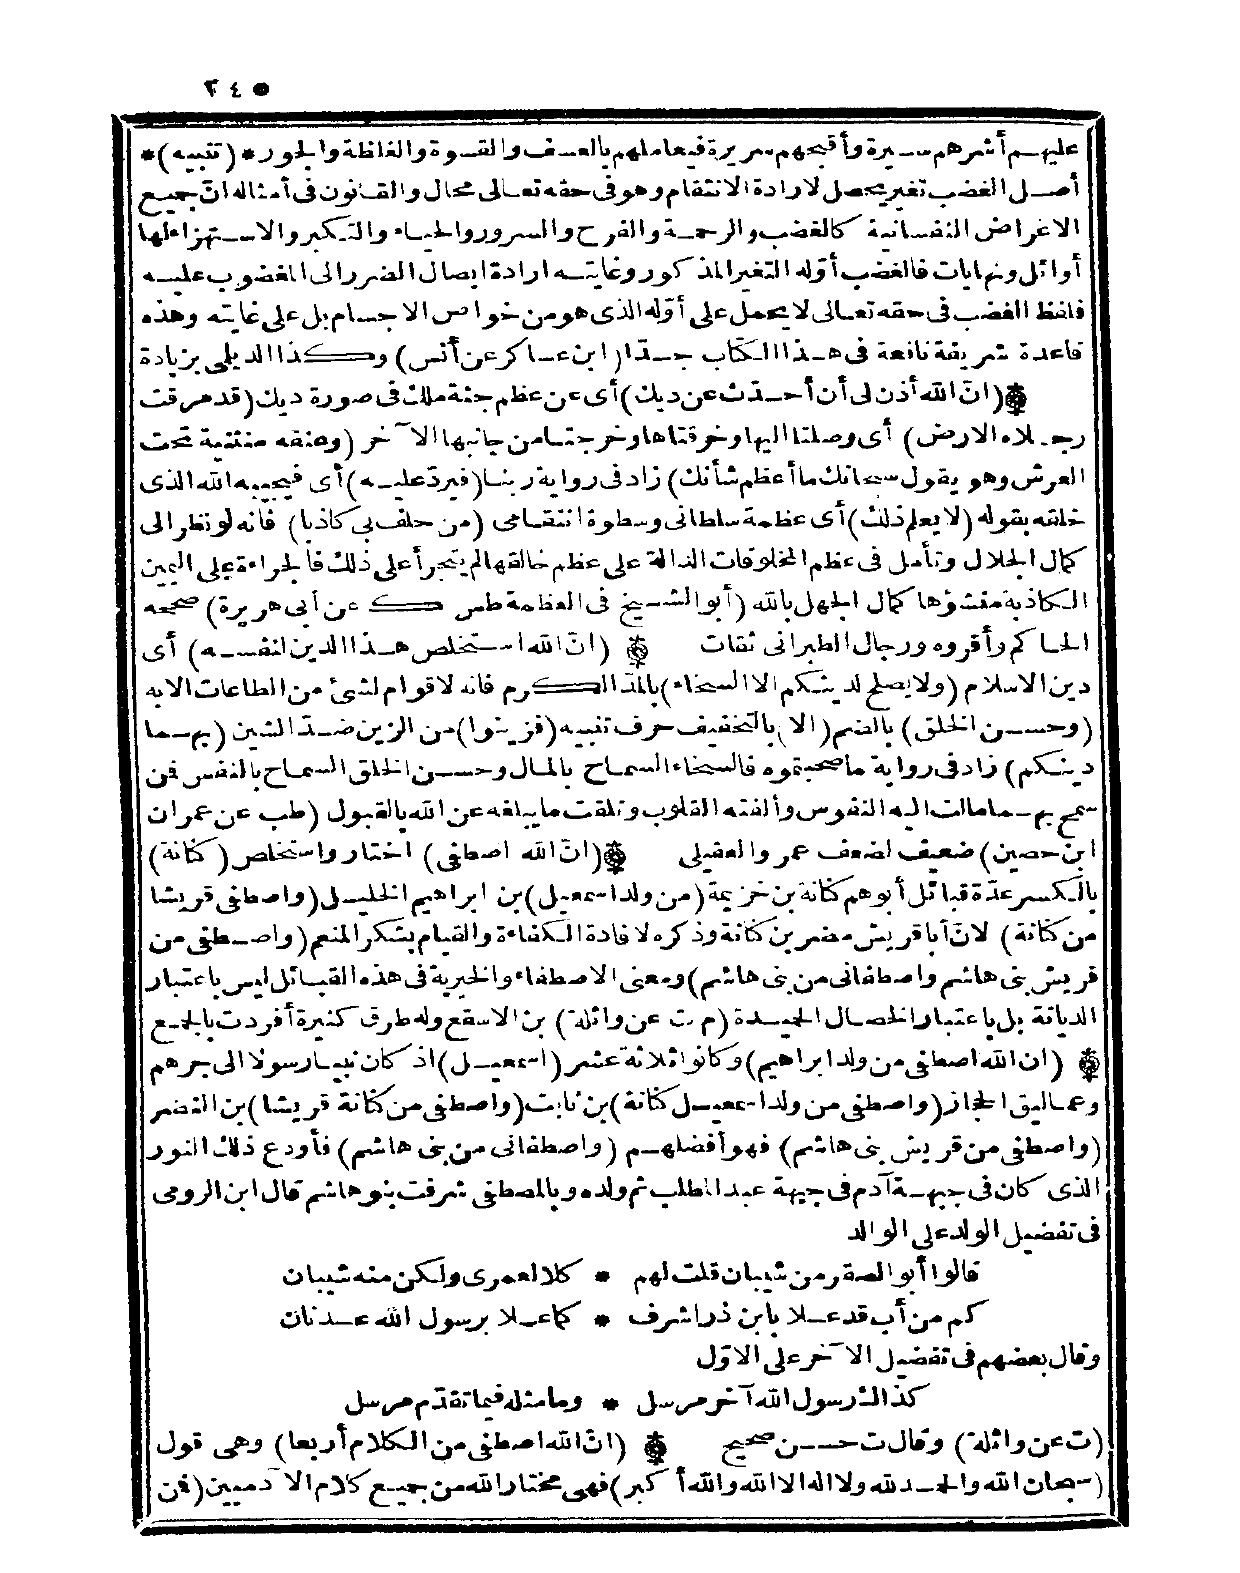 ٢٤٥
عليهم أشرهم سيرة وأقبحهم سريرة فيعاملهم بالعسف والقسوة والغلظة والجور * (تنبيه) *
أصل الغضب تغير يحصل لارادة الانتقام وهو فى حقه تعالى محال والقانون فى أمثاله انّ جميع
الاغراض النفسانية كالغضب والرحمة والفرح والسرور والحياء والتكبر والاستهزاء لها
أوائل ونهايات فالغضب أوّله التغير المذكور وغايته ارادة ايصال الضرر الى المغضوب عليه
فلفظ الغضب فى حقه تعالى لا يحمل على أوّله الذى هو من خواص الاجسام بل على غايته وهذه
قاعدة شريفة نافعة فى هذا الكتاب جدّا (ابن عساكر عن أنس) وكذا الديلى بزيادة
(انّ الله أذن لى أن أحدّث عن ديك) أى عن عظم جثة ملك فى صورة ديك (قد مرقت
رجلاه الارض) أى وصلتا اليها وخرقتاها وخرجتا من جانبها الآخر (وعنقه منثنية تحت
العرش وهو يقول سبحانك ما أعظم شأنك) زاد فى رواية ربنا (فيردّ عليه) أى فيجيبه الله الذى
خلقه بقوله (لا يعلم ذلك) أى عظمة سلطانى وسطوة انتقامى (من حلف بى كاذبا) فانه لو نظر الى
كمال الجلال وتأمل فى عظم المخلوقات الدالة على عظم خالقها لم يتجرأ على ذلك فالجراءة على اليمين
الكاذبة منشؤها كمال الجهل بالله (أبو الشيخ فى العظمة طس ك عن أبى هريرة) صححه
الحاكم وأقروه ورجال الطبرانى ثقات (انّ الله استخلص هذا الدين لنفسه) أى
دين الاسلام (ولا يصلح لدينكم الا السخاء) بالمدّ الكرم فانه لا قوام لشئ من الطاعات الا به
(وحسن الخلق) بالضم (ألا) بالتخفيف حرف تنبيه (فزينوا) من الزين ضدّ الشين (بهما
دينكم) زاد فى رواية ما صحبتموه فالسخاء السماح بالمال وحسن الخلق السماح بالنفس فمن
سمح بهما مالت اليه النفوس وألفته القلوب وتلقت ما يبلغه عن الله بالقبول (طب عن عمران
ابن حصين) ضعيف لضعف عمرو العقيلى (انّ الله اصطفى) اختار واستخلص (كنانة)
بالكسر عدّة قبائل أبوهم كنانة بن خزيمة (من ولد اسمعيل) بن ابراهيم الخليل (واصطفى قريشا
من كنانة) لانّ أبا قريش مضر بن كنانة وذكره لافادة الكفاءة والقيام بشكر المنعم (واصطفى من
قريش بنى هاشم واصطفانى من بنى هاشم) ومعنى الاصطفاء والخيرية فى هذه القبائل ليس باعتبار
الديانة بل باعتبار الخصال الحميدة (م ت عن واثلة) بن الاسقع وله طرق كثيرة أفردت بالجمع
(ان الله اصطفى من ولد ابراهيم) وكانوا ثلاثة عشر (اسمعيل) اذ كان نبيا رسولا الى جرهم
وعماليق الحجاز (واصطفى من ولد اسمعيل كنانة) بن نابت (واصطفى من كنانة قريشا) بن النضر
(واصطفى من قريش بنى هاشم) فهو أفضلهم (واصطفانى من بنى هاشم) فأودع ذلك النور
الذى كان فى جبهة آدم فى جبهة عبد المطلب ثم ولده وبالمصطفى شرفت بنو هاشم قال ابن الرومى
فى تفضيل الولد على الوالد
قالوا أبو الصقر من شيبان قلت لهم * كلا لعمرى ولكن منه شيبان
كم من أب قد علا بابن ذرا شرف * كما علا برسول الله عدنان
وقال بعضهم فى تفضيل الآخر على الاوّل
كذاك رسول الله آخر مرسل * وما مثله فيما تقدّم مرسل
(ت عن واثلة) وقال ت حسن صحيح (انّ الله اصطفى من الكلام أربعا) وهى قول
(سبحان الله والحمد لله ولا اله الا الله والله أكبر) فهى مختار الله من جميع كلام الآدميين (فمن